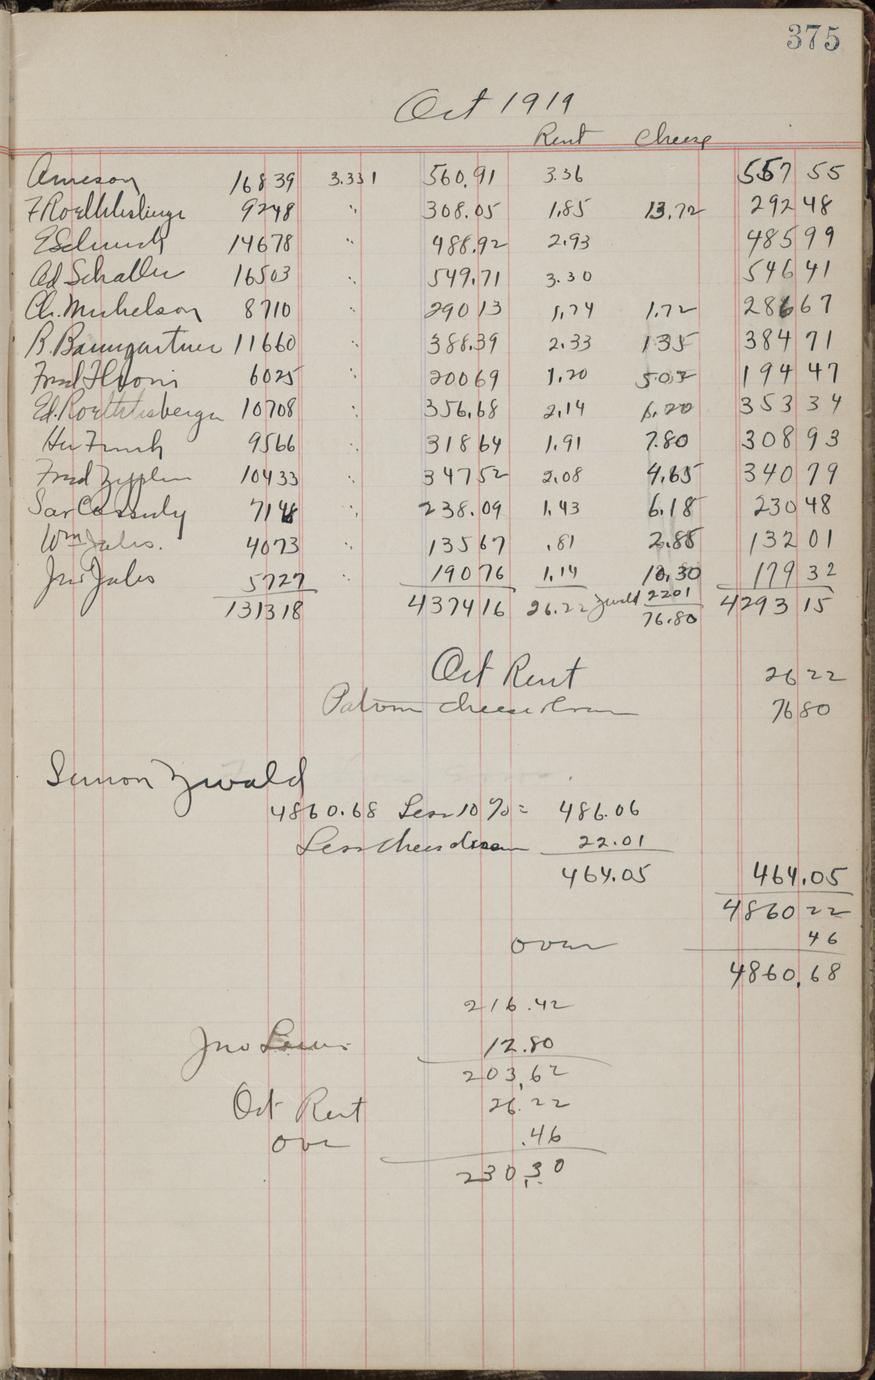 375
Oct 1919
Rent Cheese
Ameson 16839 3.331 560.91 3.36 557 55
F Roethlisberger 9248 " 308.05 1.85 13.72 292 48
E Schmid 14678 " 488.92 2.93 485 99
Ad Schaller 16503 " 549.71 3.30 546 41
Ch. Michelson 8710 " 290 13 1.74 1.72 286 67
R. Baumgartner 11660 " 388.39 2.33 1 35 384 71
Fred 6025 " 200 69 1.20 5.02 194 47
Ed. Roethlisberger 10708 " 356.68 2.14 1.20 353 34
9566 " 318 64 1.91 7.80 308 93
Fred 10433 " 347 52 2.08 4.65 340 79
Cassidy 7148 " 238.09 1.43 6.18 230 48
Wm Jules. 4073 " 135 67 .81 2.85 132 01
Jno Jules 5727 " 190 76 1.14 10.30 179 32
Zwald 2201
131318 4374 16 26.22 76.80 4293 15
Oct Rent 26 22
Patrons cheese 76 80
Simon Zwald
4860.68 Less 10 % = 486.06
Less cheese 22.01
464.05 464.05
4860 22
over 46
4860.68
216.42
Jno 12.80
203.62
Oct Rent 26.22
over .46
230.30